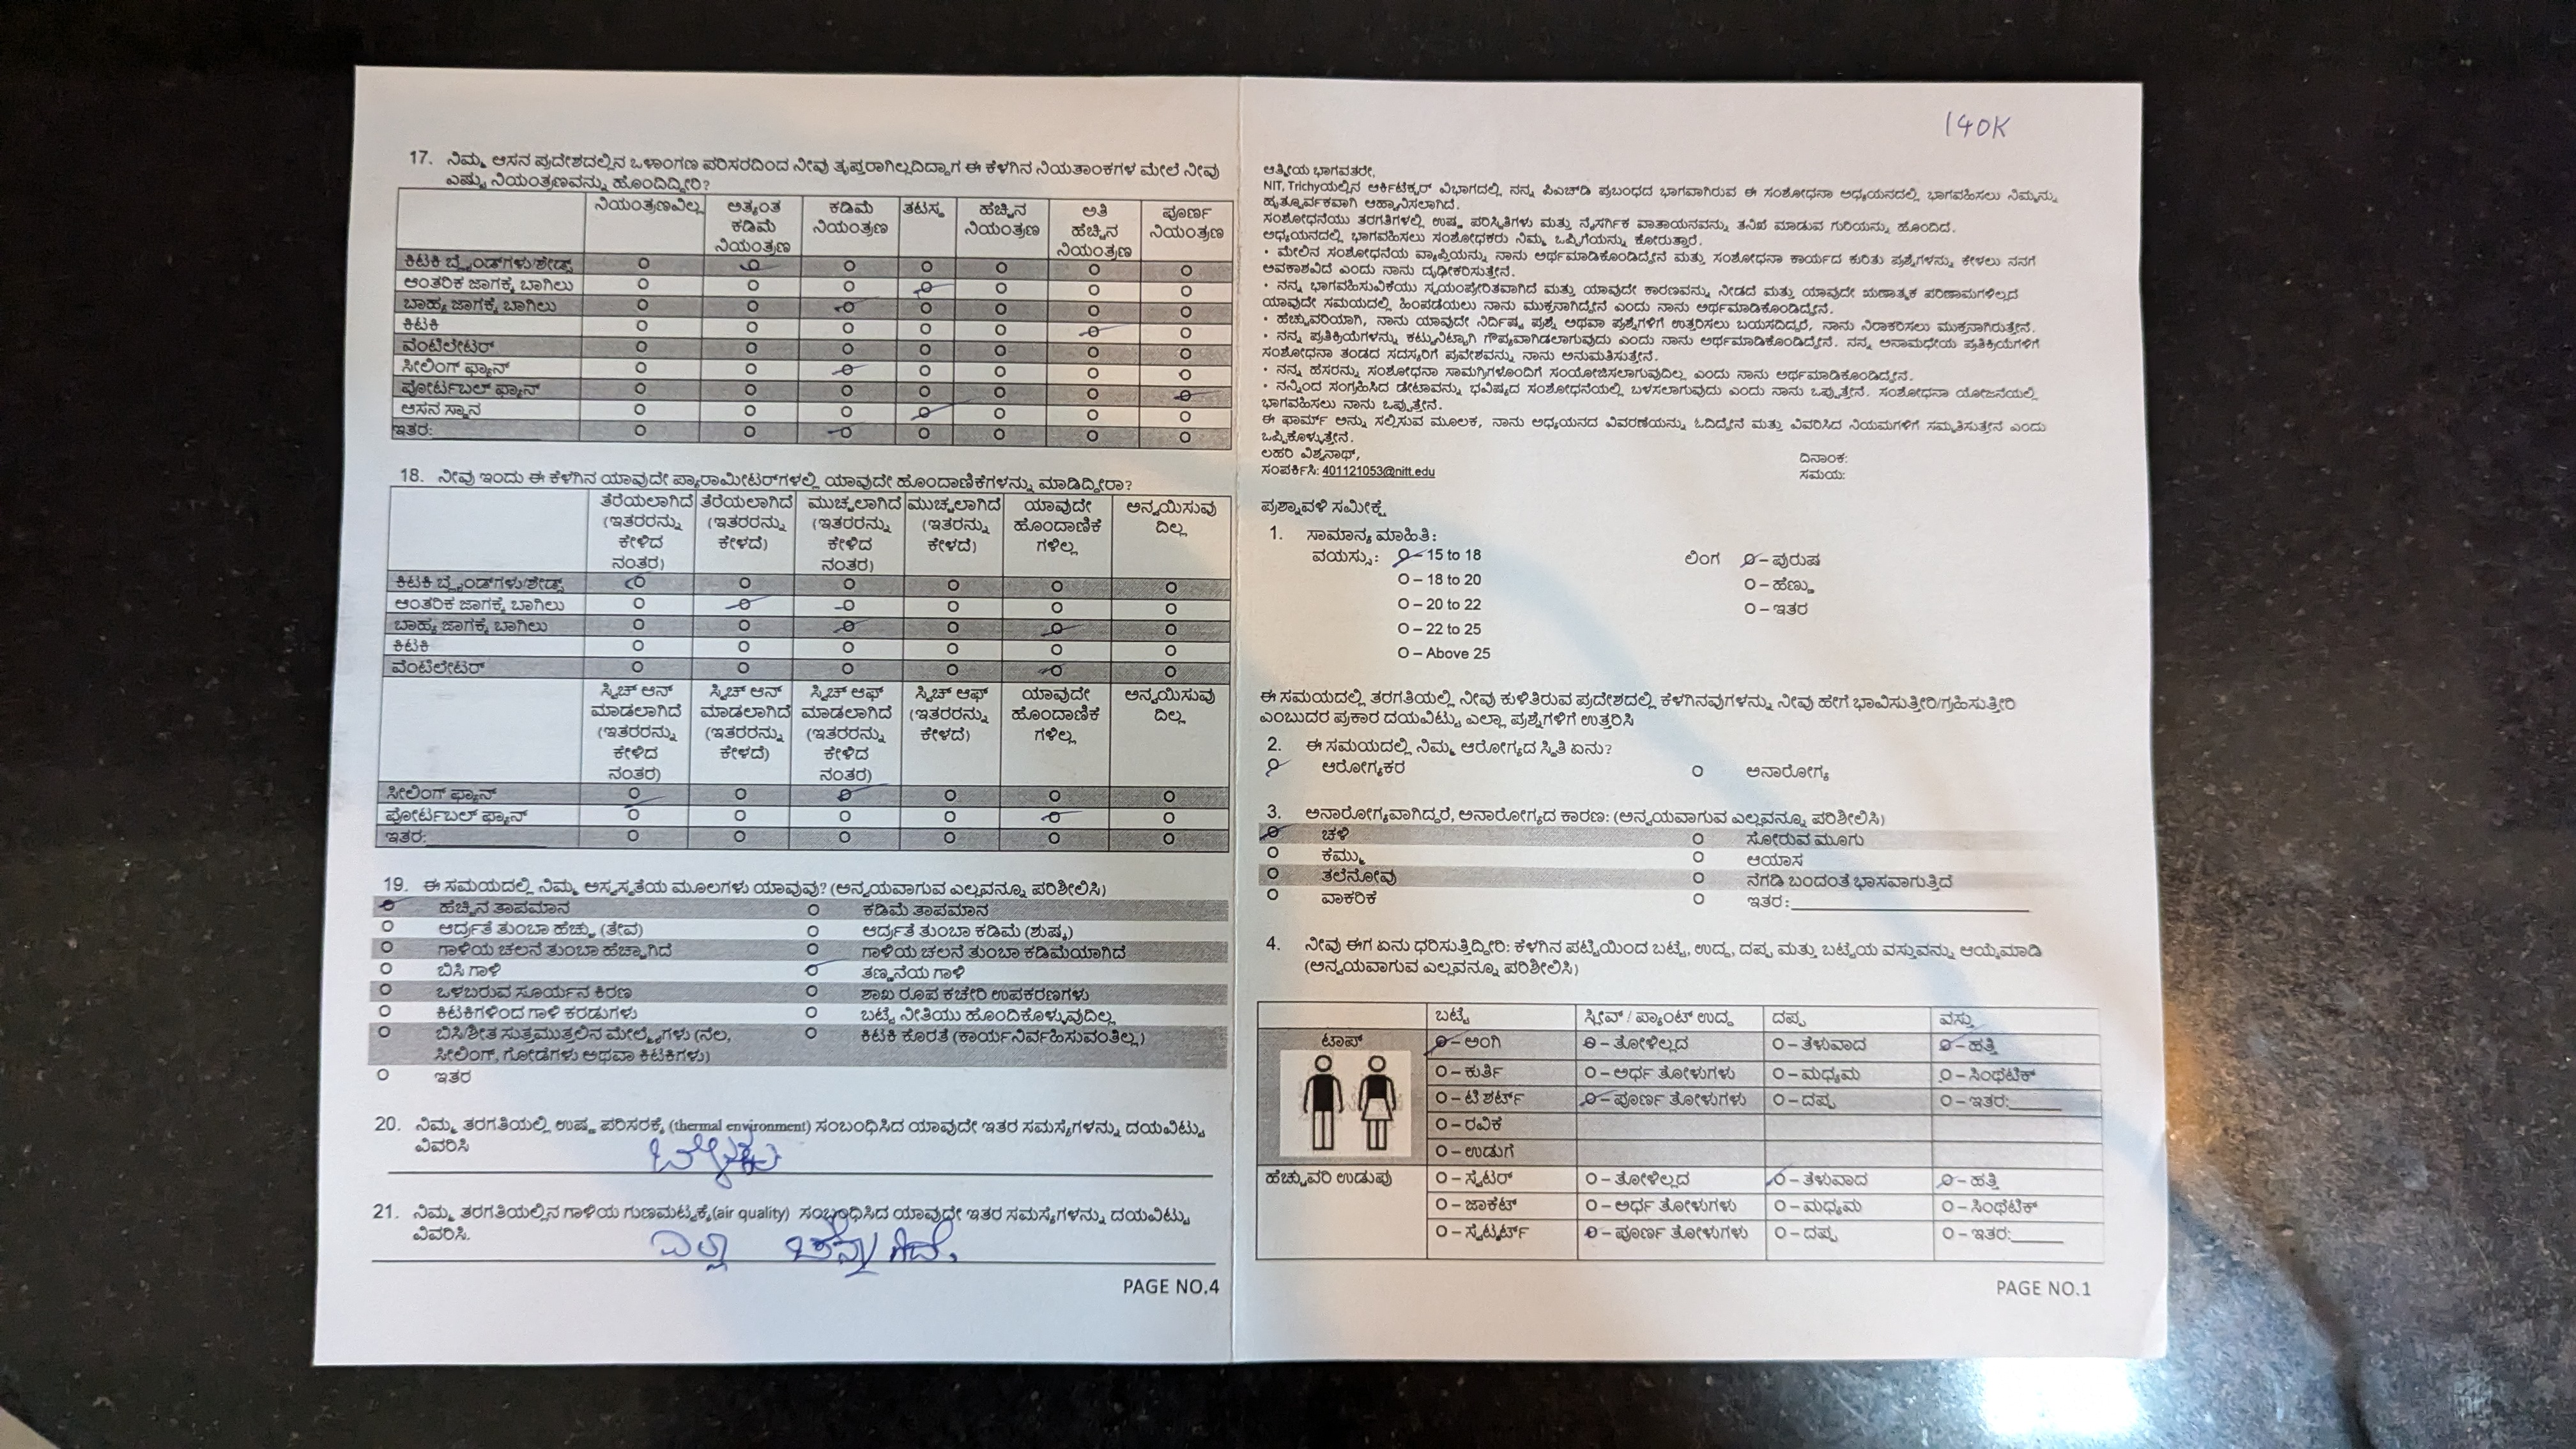 17. ನಿಮ್ಮ ಆಸನ ಪ್ರದೇಶದಲ್ಲಿನ ಒಳಾಂಗಣ ಪರಿಸರದಿಂದ ನೀವು ತೃಪ್ತರಾಗಿಲ್ಲದಿದ್ದಾಗ ಈ ಕೆಳಗಿನ ನಿಯತಾಂಕಗಳ ಮೇಲೆ ನೀವು
ಎಷ್ಟು ನಿಯಂತ್ರಣವನ್ನು ಹೊಂದಿದ್ದೀರಿ?
ನಿಯಂತ್ರಣವಿಲ್ಲ ಅತ್ಯಂತ ಕಡಿಮೆ ನಿಯಂತ್ರಣ ಕಡಿಮೆ ನಿಯಂತ್ರಣ ತಟಸ್ಥ ಹೆಚ್ಚಿನ ನಿಯಂತ್ರಣ ಅತಿ ಹೆಚ್ಚಿನ ನಿಯಂತ್ರಣ ಪೂರ್ಣ ನಿಯಂತ್ರಣ
ಕಿಟಕಿ ಬ್ಲೈಂಡ್‌ಗಳು/ಶೇಡ್ಸ್
ಆಂತರಿಕ ಜಾಗಕ್ಕೆ ಬಾಗಿಲು
ಬಾಹ್ಯ ಜಾಗಕ್ಕೆ ಬಾಗಿಲು
ಕಿಟಕಿ
ವೆಂಟಿಲೇಟರ್
ಸೀಲಿಂಗ್ ಫ್ಯಾನ್
ಪೋರ್ಟಬಲ್ ಫ್ಯಾನ್
ಆಸನ ಸ್ಥಾನ
ಇತರ:
18. ನೀವು ಇಂದು ಈ ಕೆಳಗಿನ ಯಾವುದೇ ಪ್ಯಾರಾಮೀಟರ್‌ಗಳಲ್ಲಿ ಯಾವುದೇ ಹೊಂದಾಣಿಕೆಗಳನ್ನು ಮಾಡಿದ್ದೀರಾ?
ತೆರೆಯಲಾಗಿದೆ (ಇತರರನ್ನು ಕೇಳಿದ ನಂತರ) ತೆರೆಯಲಾಗಿದೆ (ಇತರರನ್ನು ಕೇಳದೆ) ಮುಚ್ಚಲಾಗಿದೆ (ಇತರರನ್ನು ಕೇಳಿದ ನಂತರ) ಮುಚ್ಚಲಾಗಿದೆ (ಇತರರನ್ನು ಕೇಳದೆ) ಯಾವುದೇ ಹೊಂದಾಣಿಕೆ ಗಳಿಲ್ಲ ಅನ್ವಯಿಸುವು ದಿಲ್ಲ
ಕಿಟಕಿ ಬ್ಲೈಂಡ್‌ಗಳು/ಶೇಡ್ಸ್
ಆಂತರಿಕ ಜಾಗಕ್ಕೆ ಬಾಗಿಲು
ಬಾಹ್ಯ ಜಾಗಕ್ಕೆ ಬಾಗಿಲು
ಕಿಟಕಿ
ವೆಂಟಿಲೇಟರ್
ಸ್ವಿಚ್ ಆನ್ ಮಾಡಲಾಗಿದೆ (ಇತರರನ್ನು ಕೇಳಿದ ನಂತರ) ಸ್ವಿಚ್ ಆನ್ ಮಾಡಲಾಗಿದೆ (ಇತರರನ್ನು ಕೇಳದೆ) ಸ್ವಿಚ್ ಆಫ್ ಮಾಡಲಾಗಿದೆ (ಇತರರನ್ನು ಕೇಳಿದ ನಂತರ) ಸ್ವಿಚ್ ಆಫ್ (ಇತರರನ್ನು ಕೇಳದೆ) ಯಾವುದೇ ಹೊಂದಾಣಿಕೆ ಗಳಿಲ್ಲ ಅನ್ವಯಿಸುವು ದಿಲ್ಲ
ಸೀಲಿಂಗ್ ಫ್ಯಾನ್
ಪೋರ್ಟಬಲ್ ಫ್ಯಾನ್
ಇತರ:
19. ಈ ಸಮಯದಲ್ಲಿ ನಿಮ್ಮ ಅಸ್ವಸ್ಥತೆಯ ಮೂಲಗಳು ಯಾವುವು? (ಅನ್ವಯವಾಗುವ ಎಲ್ಲವನ್ನೂ ಪರಿಶೀಲಿಸಿ)
ಹೆಚ್ಚಿನ ತಾಪಮಾನ ಕಡಿಮೆ ತಾಪಮಾನ
ಆರ್ದ್ರತೆ ತುಂಬಾ ಹೆಚ್ಚು (ತೇವ) ಆರ್ದ್ರತೆ ತುಂಬಾ ಕಡಿಮೆ (ಶುಷ್ಕ)
ಗಾಳಿಯ ಚಲನೆ ತುಂಬಾ ಹೆಚ್ಚಾಗಿದೆ ಗಾಳಿಯ ಚಲನೆ ತುಂಬಾ ಕಡಿಮೆಯಾಗಿದೆ
ಬಿಸಿ ಗಾಳಿ ತಣ್ಣನೆಯ ಗಾಳಿ
ಒಳಬರುವ ಸೂರ್ಯನ ಕಿರಣ ಶಾಖ ರೂಪ ಕಚೇರಿ ಉಪಕರಣಗಳು
ಕಿಟಕಿಗಳಿಂದ ಗಾಳಿ ಕರಡುಗಳು ಬಟ್ಟೆ ನೀತಿಯು ಹೊಂದಿಕೊಳ್ಳುವುದಿಲ್ಲ
ಬಿಸಿ/ಶೀತ ಸುತ್ತಮುತ್ತಲಿನ ಮೇಲ್ಮೈಗಳು (ನೆಲ, ಕಿಟಕಿ ಕೊರತೆ (ಕಾರ್ಯನಿರ್ವಹಿಸುವಂತಿಲ್ಲ)
ಸೀಲಿಂಗ್, ಗೋಡೆಗಳು ಅಥವಾ ಕಿಟಕಿಗಳು)
ಇತರ
20. ನಿಮ್ಮ ತರಗತಿಯಲ್ಲಿ ಉಷ್ಣ ಪರಿಸರಕ್ಕೆ (thermal environment) ಸಂಬಂಧಿಸಿದ ಯಾವುದೇ ಇತರ ಸಮಸ್ಯೆಗಳನ್ನು ದಯವಿಟ್ಟು
ವಿವರಿಸಿ
21. ನಿಮ್ಮ ತರಗತಿಯಲ್ಲಿನ ಗಾಳಿಯ ಗುಣಮಟ್ಟಕ್ಕೆ(air quality) ಸಂಬಂಧಿಸಿದ ಯಾವುದೇ ಇತರ ಸಮಸ್ಯೆಗಳನ್ನು ದಯವಿಟ್ಟು
ವಿವರಿಸಿ.
ಎಲ್ಲಾ ಚೆನ್ನಾಗಿದೆ.
PAGE NO.4
140K
ಆತ್ಮೀಯ ಭಾಗವತರೇ,
NIT, Trichyಯಲ್ಲಿನ ಆರ್ಕಿಟೆಕ್ಚರ್ ವಿಭಾಗದಲ್ಲಿ ನನ್ನ ಪಿಎಚ್‌ಡಿ ಪ್ರಬಂಧದ ಭಾಗವಾಗಿರುವ ಈ ಸಂಶೋಧನಾ ಅಧ್ಯಯನದಲ್ಲಿ ಭಾಗವಹಿಸಲು ನಿಮ್ಮನ್ನು
ಹೃತ್ಪೂರ್ವಕವಾಗಿ ಆಹ್ವಾನಿಸಲಾಗಿದೆ.
ಸಂಶೋಧನೆಯು ತರಗತಿಗಳಲ್ಲಿ ಉಷ್ಣ ಪರಿಸ್ಥಿತಿಗಳು ಮತ್ತು ನೈಸರ್ಗಿಕ ವಾತಾಯನವನ್ನು ತನಿಖೆ ಮಾಡುವ ಗುರಿಯನ್ನು ಹೊಂದಿದೆ.
ಅಧ್ಯಯನದಲ್ಲಿ ಭಾಗವಹಿಸಲು ಸಂಶೋಧಕರು ನಿಮ್ಮ ಒಪ್ಪಿಗೆಯನ್ನು ಕೋರುತ್ತಾರೆ.
• ಮೇಲಿನ ಸಂಶೋಧನೆಯ ವ್ಯಾಪ್ತಿಯನ್ನು ನಾನು ಅರ್ಥಮಾಡಿಕೊಂಡಿದ್ದೇನೆ ಮತ್ತು ಸಂಶೋಧನಾ ಕಾರ್ಯದ ಕುರಿತು ಪ್ರಶ್ನೆಗಳನ್ನು ಕೇಳಲು ನನಗೆ
ಅವಕಾಶವಿದೆ ಎಂದು ನಾನು ದೃಢೀಕರಿಸುತ್ತೇನೆ.
• ನನ್ನ ಭಾಗವಹಿಸುವಿಕೆಯು ಸ್ವಯಂಪ್ರೇರಿತವಾಗಿದೆ ಮತ್ತು ಯಾವುದೇ ಕಾರಣವನ್ನು ನೀಡದೆ ಮತ್ತು ಯಾವುದೇ ಋಣಾತ್ಮಕ ಪರಿಣಾಮಗಳಿಲ್ಲದೆ
ಯಾವುದೇ ಸಮಯದಲ್ಲಿ ಹಿಂಪಡೆಯಲು ನಾನು ಮುಕ್ತನಾಗಿದ್ದೇನೆ ಎಂದು ನಾನು ಅರ್ಥಮಾಡಿಕೊಂಡಿದ್ದೇನೆ.
• ಹೆಚ್ಚುವರಿಯಾಗಿ, ನಾನು ಯಾವುದೇ ನಿರ್ದಿಷ್ಟ ಪ್ರಶ್ನೆ ಅಥವಾ ಪ್ರಶ್ನೆಗಳಿಗೆ ಉತ್ತರಿಸಲು ಬಯಸದಿದ್ದರೆ, ನಾನು ನಿರಾಕರಿಸಲು ಮುಕ್ತನಾಗಿರುತ್ತೇನೆ.
• ನನ್ನ ಪ್ರತಿಕ್ರಿಯೆಗಳನ್ನು ಕಟ್ಟುನಿಟ್ಟಾಗಿ ಗೌಪ್ಯವಾಗಿಡಲಾಗುವುದು ಎಂದು ನಾನು ಅರ್ಥಮಾಡಿಕೊಂಡಿದ್ದೇನೆ. ನನ್ನ ಅನಾಮಧೇಯ ಪ್ರತಿಕ್ರಿಯೆಗಳಿಗೆ
ಸಂಶೋಧನಾ ತಂಡದ ಸದಸ್ಯರಿಗೆ ಪ್ರವೇಶವನ್ನು ನಾನು ಅನುಮತಿಸುತ್ತೇನೆ.
• ನನ್ನ ಹೆಸರನ್ನು ಸಂಶೋಧನಾ ಸಾಮಗ್ರಿಗಳೊಂದಿಗೆ ಸಂಯೋಜಿಸಲಾಗುವುದಿಲ್ಲ ಎಂದು ನಾನು ಅರ್ಥಮಾಡಿಕೊಂಡಿದ್ದೇನೆ.
• ನನ್ನಿಂದ ಸಂಗ್ರಹಿಸಿದ ಡೇಟಾವನ್ನು ಭವಿಷ್ಯದ ಸಂಶೋಧನೆಯಲ್ಲಿ ಬಳಸಲಾಗುವುದು ಎಂದು ನಾನು ಒಪ್ಪುತ್ತೇನೆ. ಸಂಶೋಧನಾ ಯೋಜನೆಯಲ್ಲಿ
ಭಾಗವಹಿಸಲು ನಾನು ಒಪ್ಪುತ್ತೇನೆ.
ಈ ಫಾರ್ಮ್ ಅನ್ನು ಸಲ್ಲಿಸುವ ಮೂಲಕ, ನಾನು ಅಧ್ಯಯನದ ವಿವರಣೆಯನ್ನು ಓದಿದ್ದೇನೆ ಮತ್ತು ವಿವರಿಸಿದ ನಿಯಮಗಳಿಗೆ ಸಮ್ಮತಿಸುತ್ತೇನೆ ಎಂದು
ಒಪ್ಪಿಕೊಳ್ಳುತ್ತೇನೆ.
ಲಹರಿ ವಿಶ್ವನಾಥ್, ದಿನಾಂಕ:
ಸಂಪರ್ಕಿಸಿ: 401121053@nitt.edu ಸಮಯ:
ಪ್ರಶ್ನಾವಳಿ ಸಮೀಕ್ಷೆ
1. ಸಾಮಾನ್ಯ ಮಾಹಿತಿ:
ವಯಸ್ಸು: O – 15 to 18 ಲಿಂಗ O – ಪುರುಷ
O – 18 to 20 O – ಹೆಣ್ಣು
O – 20 to 22 O – ಇತರ
O – 22 to 25
O – Above 25
ಈ ಸಮಯದಲ್ಲಿ ತರಗತಿಯಲ್ಲಿ ನೀವು ಕುಳಿತಿರುವ ಪ್ರದೇಶದಲ್ಲಿ ಕೆಳಗಿನವುಗಳನ್ನು ನೀವು ಹೇಗೆ ಭಾವಿಸುತ್ತೀರಿ/ಗ್ರಹಿಸುತ್ತೀರಿ
ಎಂಬುದರ ಪ್ರಕಾರ ದಯವಿಟ್ಟು ಎಲ್ಲಾ ಪ್ರಶ್ನೆಗಳಿಗೆ ಉತ್ತರಿಸಿ
2. ಈ ಸಮಯದಲ್ಲಿ ನಿಮ್ಮ ಆರೋಗ್ಯದ ಸ್ಥಿತಿ ಏನು?
ಆರೋಗ್ಯಕರ ಅನಾರೋಗ್ಯ
3. ಅನಾರೋಗ್ಯವಾಗಿದ್ದರೆ, ಅನಾರೋಗ್ಯದ ಕಾರಣ: (ಅನ್ವಯವಾಗುವ ಎಲ್ಲವನ್ನೂ ಪರಿಶೀಲಿಸಿ)
ಚಳಿ ಸೋರುವ ಮೂಗು
ಕೆಮ್ಮು ಆಯಾಸ
ತಲೆನೋವು ನೆಗಡಿ ಬಂದಂತೆ ಭಾಸವಾಗುತ್ತಿದೆ
ವಾಕರಿಕೆ ಇತರ:
4. ನೀವು ಈಗ ಏನು ಧರಿಸುತ್ತಿದ್ದೀರಿ: ಕೆಳಗಿನ ಪಟ್ಟಿಯಿಂದ ಬಟ್ಟೆ, ಉದ್ದ, ದಪ್ಪ ಮತ್ತು ಬಟ್ಟೆಯ ವಸ್ತುವನ್ನು ಆಯ್ಕೆಮಾಡಿ
(ಅನ್ವಯವಾಗುವ ಎಲ್ಲವನ್ನೂ ಪರಿಶೀಲಿಸಿ)
ಬಟ್ಟೆ ಸ್ಲೀವ್ / ಪ್ಯಾಂಟ್ ಉದ್ದ ದಪ್ಪ ವಸ್ತು
ಟಾಪ್ O – ಅಂಗಿ O – ತೋಳಿಲ್ಲದ O – ತೆಳುವಾದ O – ಹತ್ತಿ
O – ಕುರ್ತಿ O – ಅರ್ಧ ತೋಳುಗಳು O – ಮಧ್ಯಮ O – ಸಿಂಥೆಟಿಕ್
O – ಟಿ ಶರ್ಟ್ O – ಪೂರ್ಣ ತೋಳುಗಳು O – ದಪ್ಪ O – ಇತರ:
O – ರವಿಕೆ
O – ಉಡುಗೆ
ಹೆಚ್ಚುವರಿ ಉಡುಪು O – ಸ್ವೆಟರ್ O – ತೋಳಿಲ್ಲದ O – ತೆಳುವಾದ O – ಹತ್ತಿ
O – ಜಾಕೆಟ್ O – ಅರ್ಧ ತೋಳುಗಳು O – ಮಧ್ಯಮ O – ಸಿಂಥೆಟಿಕ್
O – ಸ್ವೆಟ್ಶರ್ಟ್ O – ಪೂರ್ಣ ತೋಳುಗಳು O – ದಪ್ಪ O – ಇತರ:
PAGE NO.1